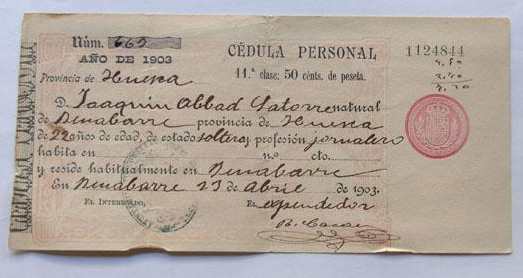 Núm. 669
AÑO DE 1903
CÉDULA PERSONAL
1124844
Provincia de Huesca
11.ª clase: 50 cénts. de peseta.
D. Joaquin Abbad Latorre natural
de Benabarre provincia de Huesca
de 22 años de edad, de estado soltero y profesión jornalero
habita en n.º cto.
y reside habitualmente en Benabarre
En Benabarre 23 de Abril de 1903.
EL INTERESADO,
EL expendedor